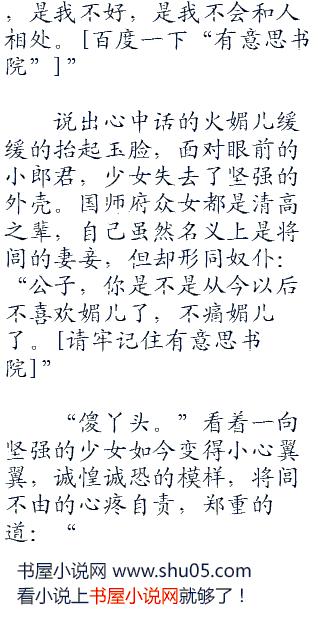 ，是我不好，是我不会和人
相处。[百度一下“有意思书
院”]”
说出心中话的火媚儿缓
缓的抬起玉脸，面对眼前的
小郎君，少女失去了坚强的
外壳。国师府众女都是清高
之辈，自己虽然名义上是将
闾的妻妾，但却形同奴仆：
“公子，你是不是从今以后
不喜欢媚儿了，不痛媚儿
了。[请牢记住有意思书
院]”
“傻丫头。”看着一向
坚强的少女如今变得小心翼
翼，诚惶诚恐的模样，将闾
不由的心疼自责，郑重的
道：“
书屋小说网 www.shu05.com
看小说上书屋小说网就够了！